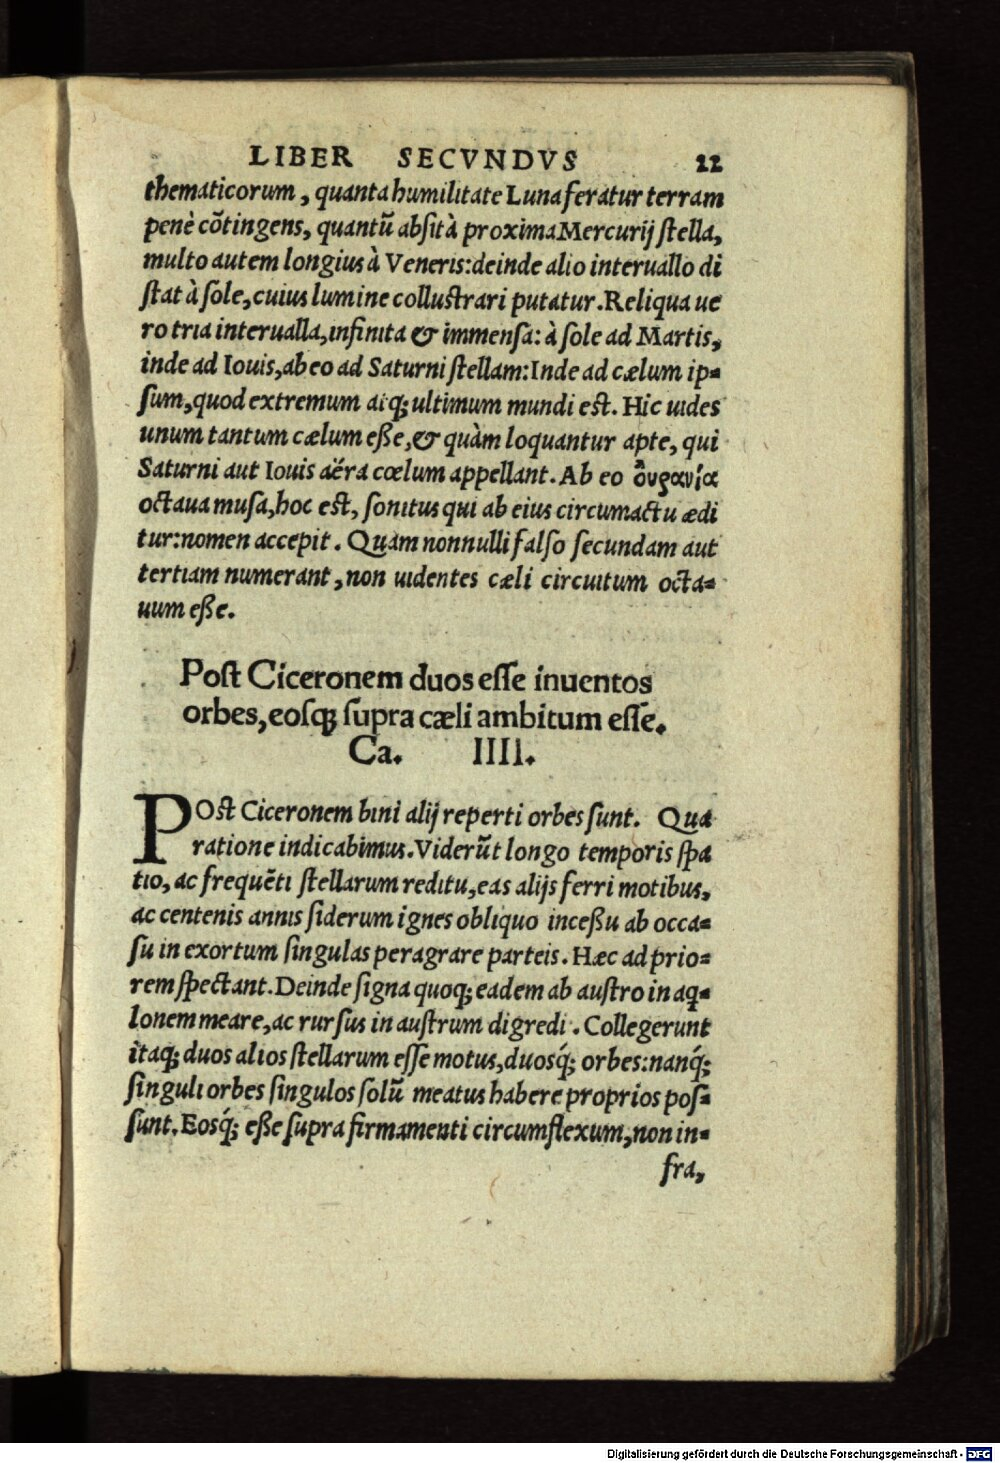 LIBER SECVNDVS 22
thematicorum, quanta humilitate Luna feratur terram
penè cõtingens, quantũ absit à proxima Mercurij stella,
multo autem longius à Veneris: deinde alio interuallo di
stat à sole, cuius lumine collustrari putatur. Reliqua ue
ro tria interualla, infinita & immensa: à sole ad Martis,
inde ad Iouis, ab eo ad Saturni stellam: Inde ad cælum ip-
sum, quod extremum atq; ultimum mundi est. Hic uides
unum tantum cælum eße, & quàm loquantur apte, qui
Saturni aut Iouis aëra cœlum appellant. Ab eo ὀυρανία
octaua musa, hoc est, sonitus qui ab eius circumactu ædi
tur: nomen accepit. Quam nonnulli falso secundam aut
tertiam numerant, non uidentes cæli circuitum octa-
uum eße.
Post Ciceronem duos esse inuentos
orbes, eosq; supra cæli ambitum esse.
Ca. IIII.
POst Ciceronem bini alij reperti orbes sunt. Qua
ratione indicabimus. Viderũt longo temporis spa
tio, ac frequẽti stellarum reditu, eas alijs ferri motibus,
ac centenis annis siderum ignes obliquo inceßu ab occa-
su in exortum singulas peragrare parteis. Hæc ad prio-
rem spectant. Deinde signa quoq; eadem ab austro in aq-
lonem meare, ac rursus in austrum digredi. Collegerunt
itaq; duos alios stellarum esse motus, duosq́; orbes: nanq́;
singuli orbes singulos solũ meatus habere proprios pos-
sunt. Eosq́; eße supra firmamenti circumflexum, non in-
fra,
Digitalisierung gefördert durch die Deutsche Forschungsgemeinschaft - DFG